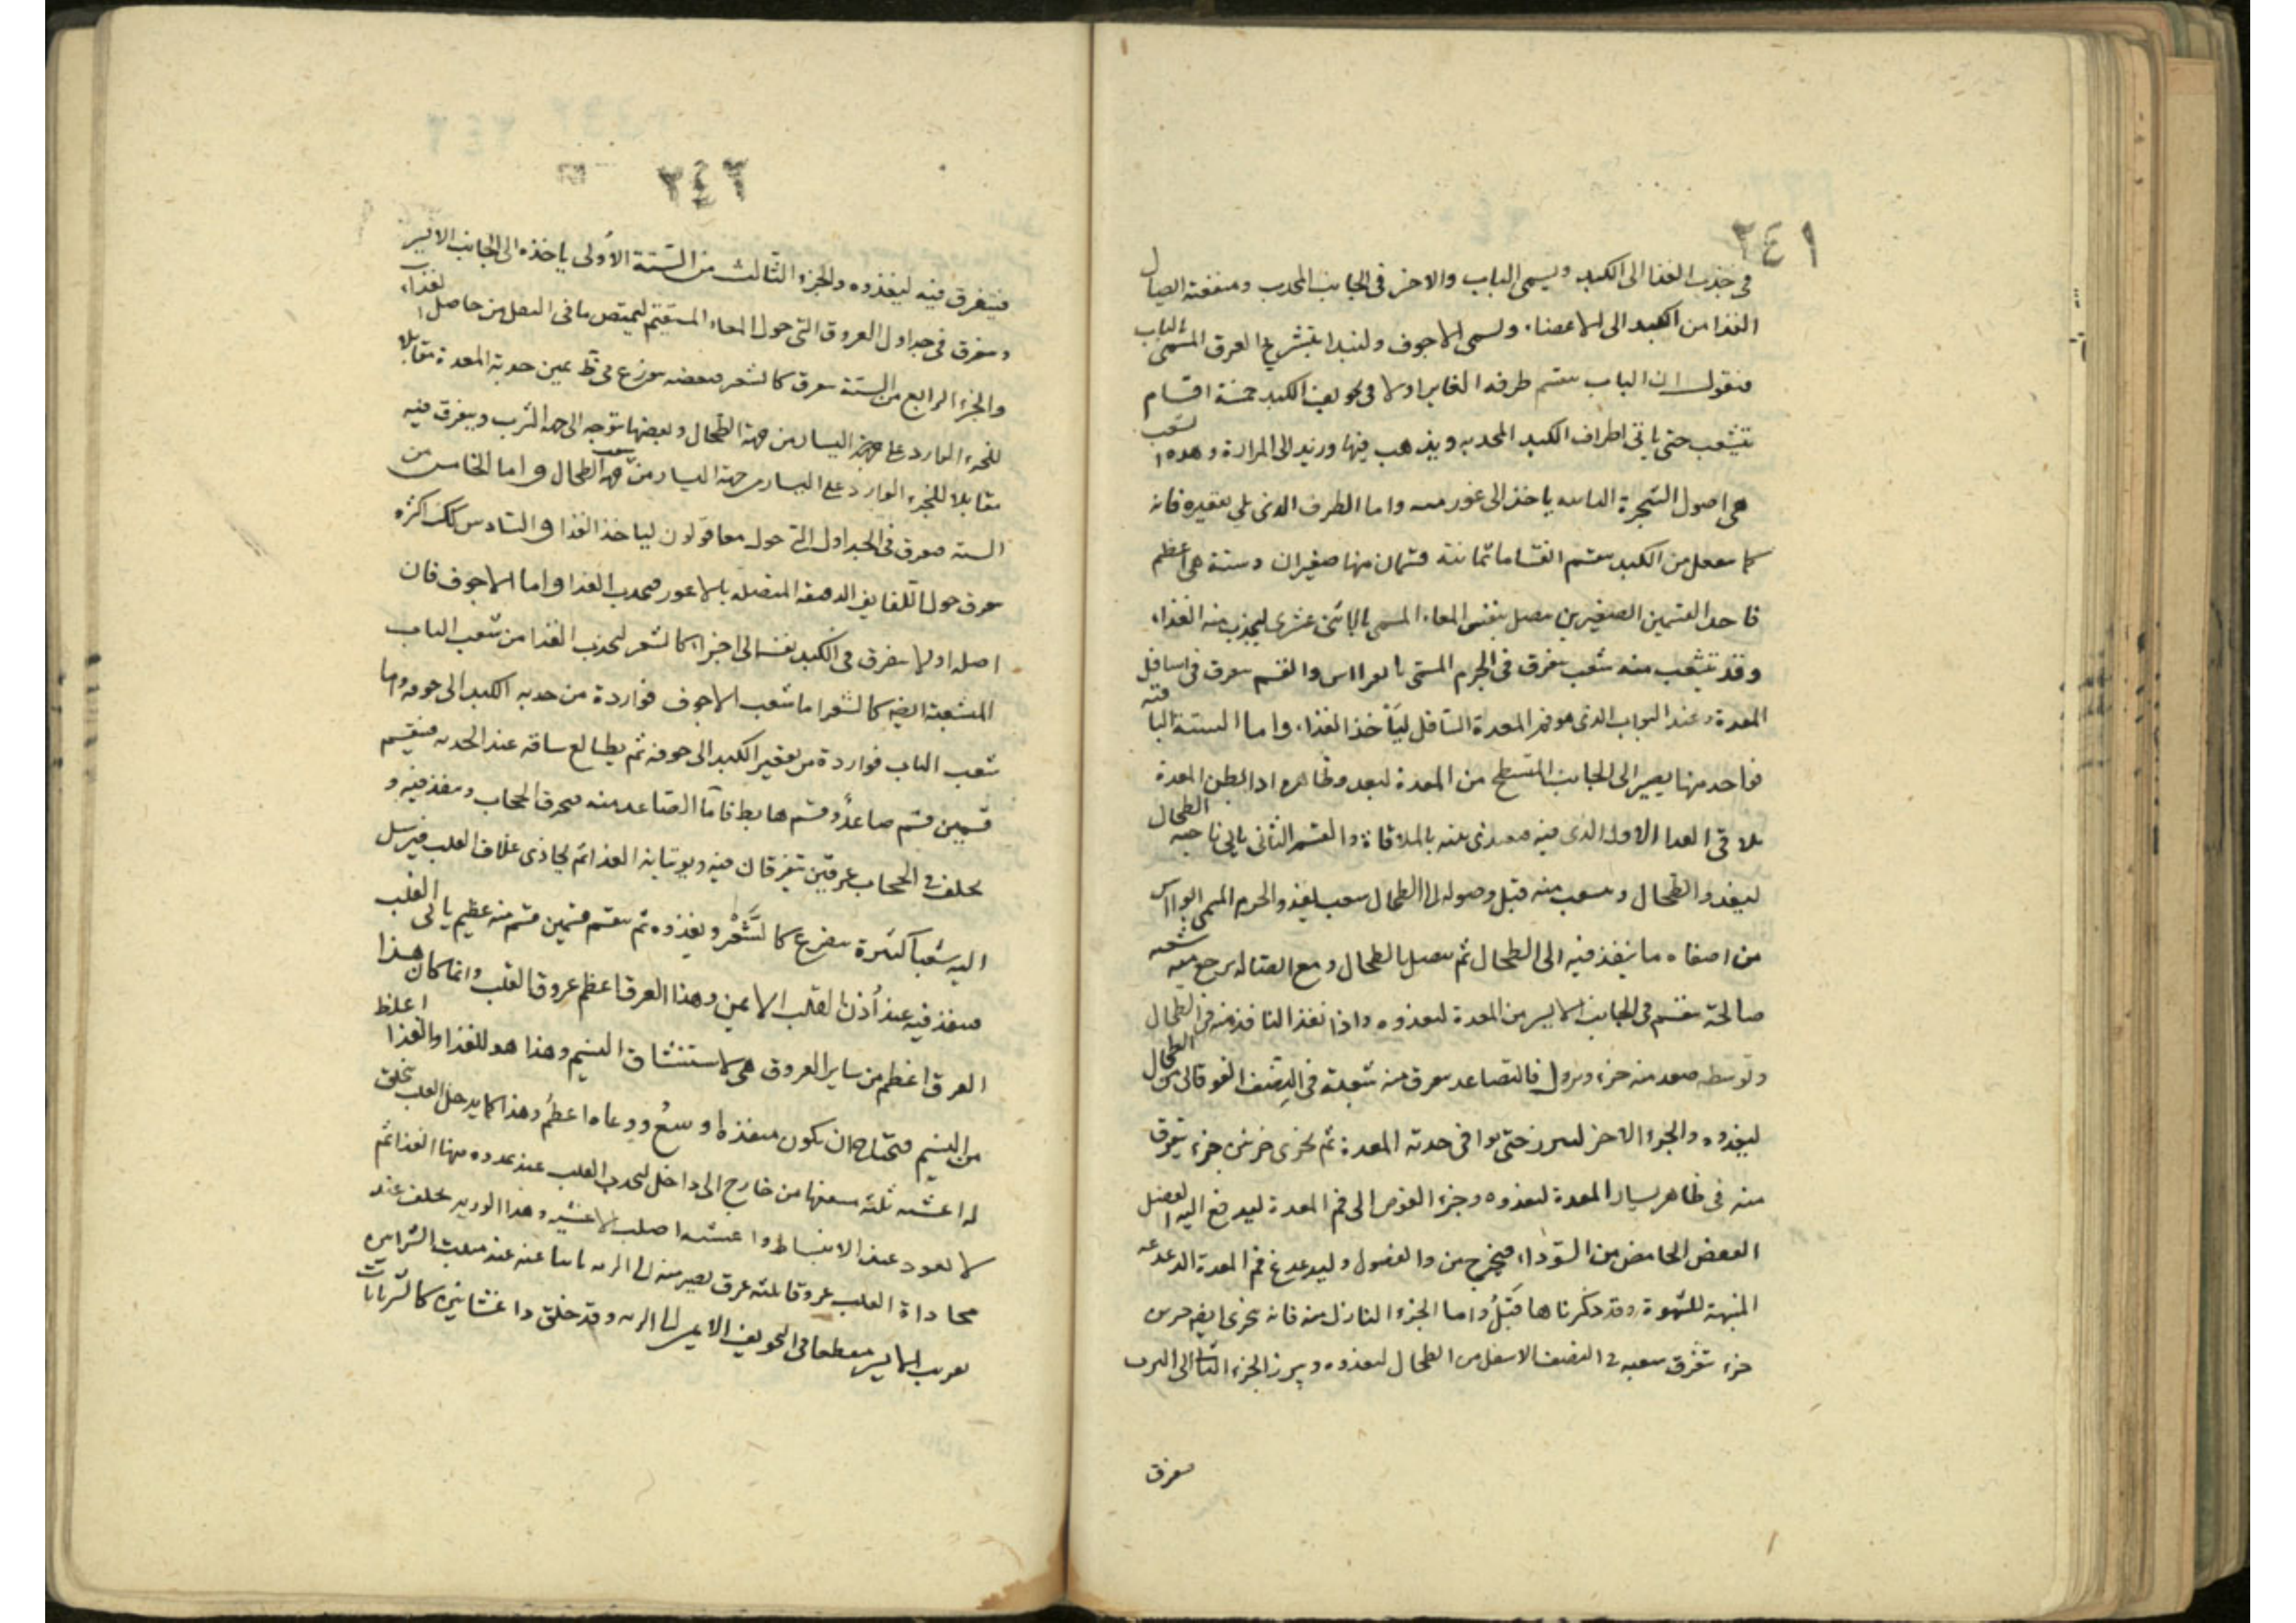 ٢٤١
في جذب الغذا الى الكبد ويسمى الباب والاخر في الجانب المحدب ومنفعته ايصال
الغذا من الكبد الى الاعضاء ويسمى الاجوف ولنبدا بتشريح العرق المسمى بالباب
فنقول ان الباب ينقسم طرفه الغاير اولا في تجويف الكبد خمسة اقسام
تتشعب حتى ياتي اطراف الكبد المحدبه ويذهب فيها وريد الى المرارة وهذه الشعب
هي اصول الشجرة ياخذ الى غور واما الطرف الذي يلي تقعيره فانه
كما ينفصل من الكبد ينقسم اقساما ثمانية قسمان منها صغيران وستة هي اعظم
فاحد القسمين الصغيرين يتصل بنفس المعاء المسمى بالاثنى عشرى ليجذب منه الغذاء
وقد يتشعب منه شعب يتفرق في الجرم المسمى والقسم يتفرق في اسافل
المعدة وعند البواب الذي هو فم المعدة السافل لياخذ الغذاء واما الستة الباقية
فواحد منها يصير الى الجانب المسطح من المعدة ليغذو ظاهره اذ باطن المعدة
يلاقي الغذا الاول الذي فيه فيغتذى منه بالملاقاة والقسم الثاني ياتي ناحية الطحال
ليغذو الطحال ويتشعب منه قبل وصوله الى الطحال شعب ليغذو الجرم المسمى
من اصفاه ما ينفذ فيه الى الطحال ثم يتصل بالطحال ومع اتصاله يرجع منه شعبه
صالحة تنقسم في الجانب الايسر من المعدة ليغذوه واذا نفذ النافذ منه في الطحال
وتوسطه صعد منه جزء ونزل فالصاعد يتفرق منه شعبة في النصف الفوقاني من الطحال
ليغذوه والجزء الاخر ليبرز حتى يوافي حدبة المعدة ثم يتجزى جزئين جزء يتفرق
منه في ظاهر يسار المعدة ليغذوه وجزء الغوص الى فم المعدة ليدفع اليه الفضل
العفص الحامض من السوداء فيخرج من والفضول وليدغدغ فم المعدة الدغدغة
المنبهة للشهوة وقد ذكرناها قبل واما الجزء النازل منه فانه يتجزى ايضا جزئين
جزء تتفرق شعبه في النصف الاسفل من الطحال ليغذوه ويبرز الجزء الثانى الى الثرب
فتفرق
٢٤٢
فيتفرق فيه ليغذوه والجزء الثالث من الستة الأولى ياخذه الى الجانب الايسر
ويتفرق في جداول العروق التي حول المعاء المستقيم ليمتص ما في الثفل من حاصل الغذاء
والجزء الرابع من الستة يتفرق كالشعر فبعضه يتوزع في ظ يمين حدبة المعدة مقابلا
للجزء الوارد على جهة اليسار من جهة الطحال وبعضها يتوجه الى جهة الثرب ويتفرق فيه
مقابلا للجزء الوارد على اليسار من جهة اليسار من شعب جهة الطحال واما الخامس من
الستة فيتفرق في الجداول التي حول معا قولون لياخذ الغذا والسادس كذلك اكثره
يتفرق حول اللفايف الدقيقة المتصلة بالاعور فيجذب الغذا واما الاجوف فان
اصله اولا يتفرق في الكبد نفسه الى اجزاء كالشعر لجذب الغذا من شعب الباب
المتشعبة ايضا كالشعر اما شعب الاجوف فواردة من حدبه الكبد الى جوفه واما
شعب الباب فواردة من تقعير الكبد الى جوفه ثم يطلع ساقه عند الحدبه فينقسم
قسمين قسم صاعدٌ وقسم هابط فامّا الصاعد منه فيخرق الحجاب وينفذ فيه و
يخلف في الحجاب عرقين يتفرقان فيه ويوتيانه الغذا ثم يحاذى غلاف القلب فيرسل
اليه شعبا كثيرة يتفرع كالشَّعْر ويغذوه ثم ينقسم قسمين قسم منه عظيم ياتي القلب
فينفذ فيه عند أذن القلب الايمن وهذا العرق اعظم عروق القلب وانما كان هذا
العرق اعظم من ساير العروق هي لاستنشاق النسيم وهذا هو للغذا والغذا اغلظ
من النسيم فيحتاج ان يكون منفذه اوسعُ ووعاه اعظمُ وهذا كما يدخل القلب يتخلق
له اغشيه ثلثه من خارج الى داخل ليجذب القلب عند تمدده منها الغذا ثم
لا يعود عند الانبساط واغشيته اصلب الاغشيه وهذا الوريد يخلف عند
محاذاة القلب عروقا ثلثه عرق يصير منه الى الريه ناتيا عنه عند منبت الشرايين
بقرب الايسر منعطفا في التجويف الايمن الى الريه وقد خلق ذا غشائين كالشريانات